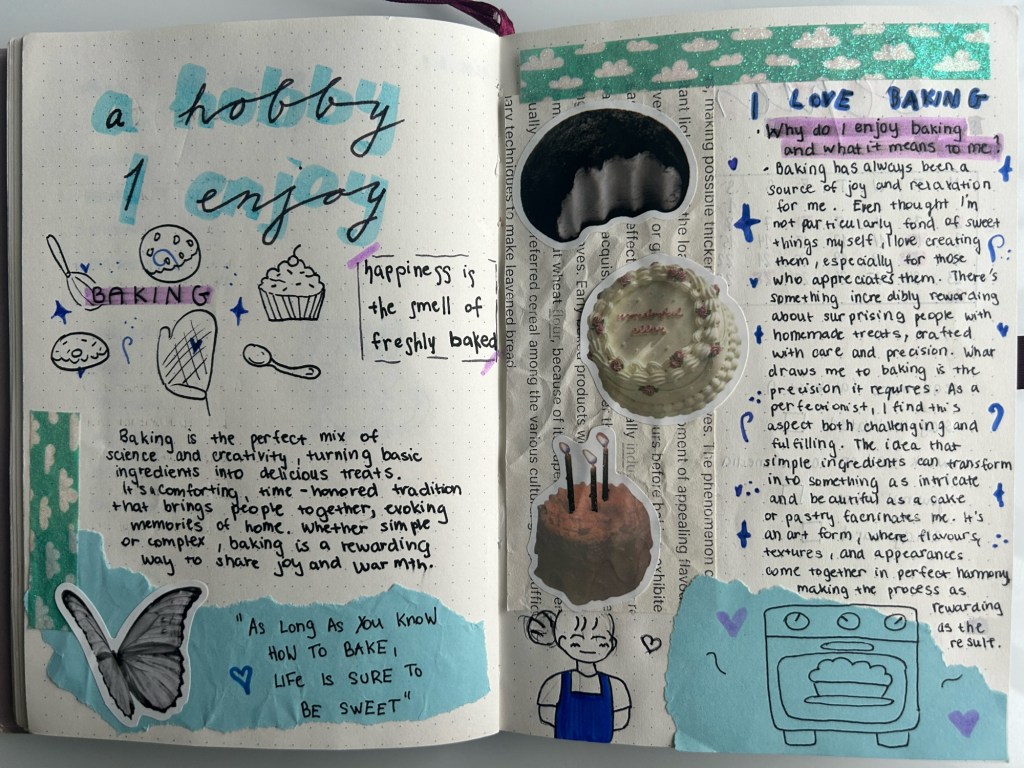 a hobby
I enjoy
BAKING
happiness is
the smell of
freshly baked
bread
Baking is the perfect mix of
science and creativity, turning basic
ingredients into delicious treats.
It's a comforting, time-honored tradition
that brings people together, evoking
memories of home. Whether simple
or complex, baking is a rewarding
way to share joy and warmth.
"As Long As You Know
How To BAKE,
Life Is SURE To
BE SWEET"
ary techniques to make leavened bread.
ually
referred cereal among the various
it wheat flour, because of it
products w
or
acquis
affect
the loa
ant
making possible thicker
ves. The phenomenon
ment of appealing flavo
urs before
exhibite
I LOVE BAKING
· Why do I enjoy baking
and what it means to me?
· Baking has always been a
source of joy and relaxation
for me. Even thought I'm
not particularly fond of sweet
things myself, I love creating
them, especially for those
who appreciates them. There's
something incredibly rewarding
about surprising people with
homemade treats, crafted
with care and precision. What
draws me to baking is the
precision it requires. As a
perfecionist, I find this
aspect both challenging and
fulfilling. The idea that
simple ingredients can transform
into something as intricate
and beautiful as a cake
or pastry facninates me. It's
an art form, where flavours,
textures, and appearances
come together in perfect harmony,
making the process as
rewarding
as the
result.